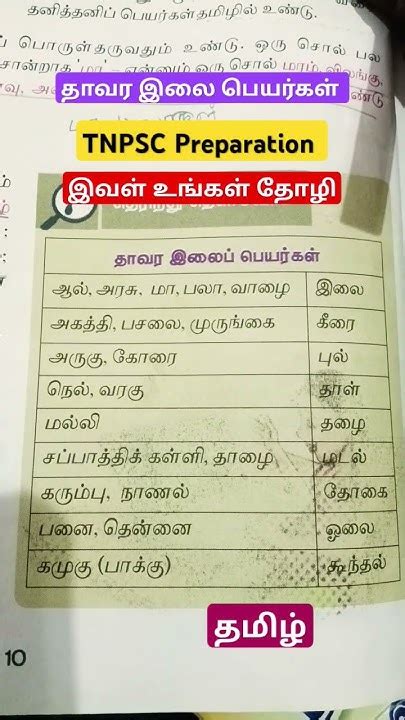 தனித்தனிப் பெயர்கள் தமிழில் உண்டு.
பொருள் தருவதும் உண்டு. ஒரு சொல் பல
என்னும் ஒரு சொல் மரம், விலங்கு,
தாவர இலை பெயர்கள்
TNPSC Preparation
இவள் உங்கள் தோழி
தாவர இலைப் பெயர்கள்
ஆல், அரசு, மா, பலா, வாழை இலை
அகத்தி, பசலை, முருங்கை கீரை
அருகு, கோரை புல்
நெல், வரகு தாள்
மல்லி தழை
சப்பாத்திக் கள்ளி, தாழை மடல்
கரும்பு, நாணல் தோகை
பனை, தென்னை ஓலை
கமுகு (பாக்கு) கூந்தல்
தமிழ்
10